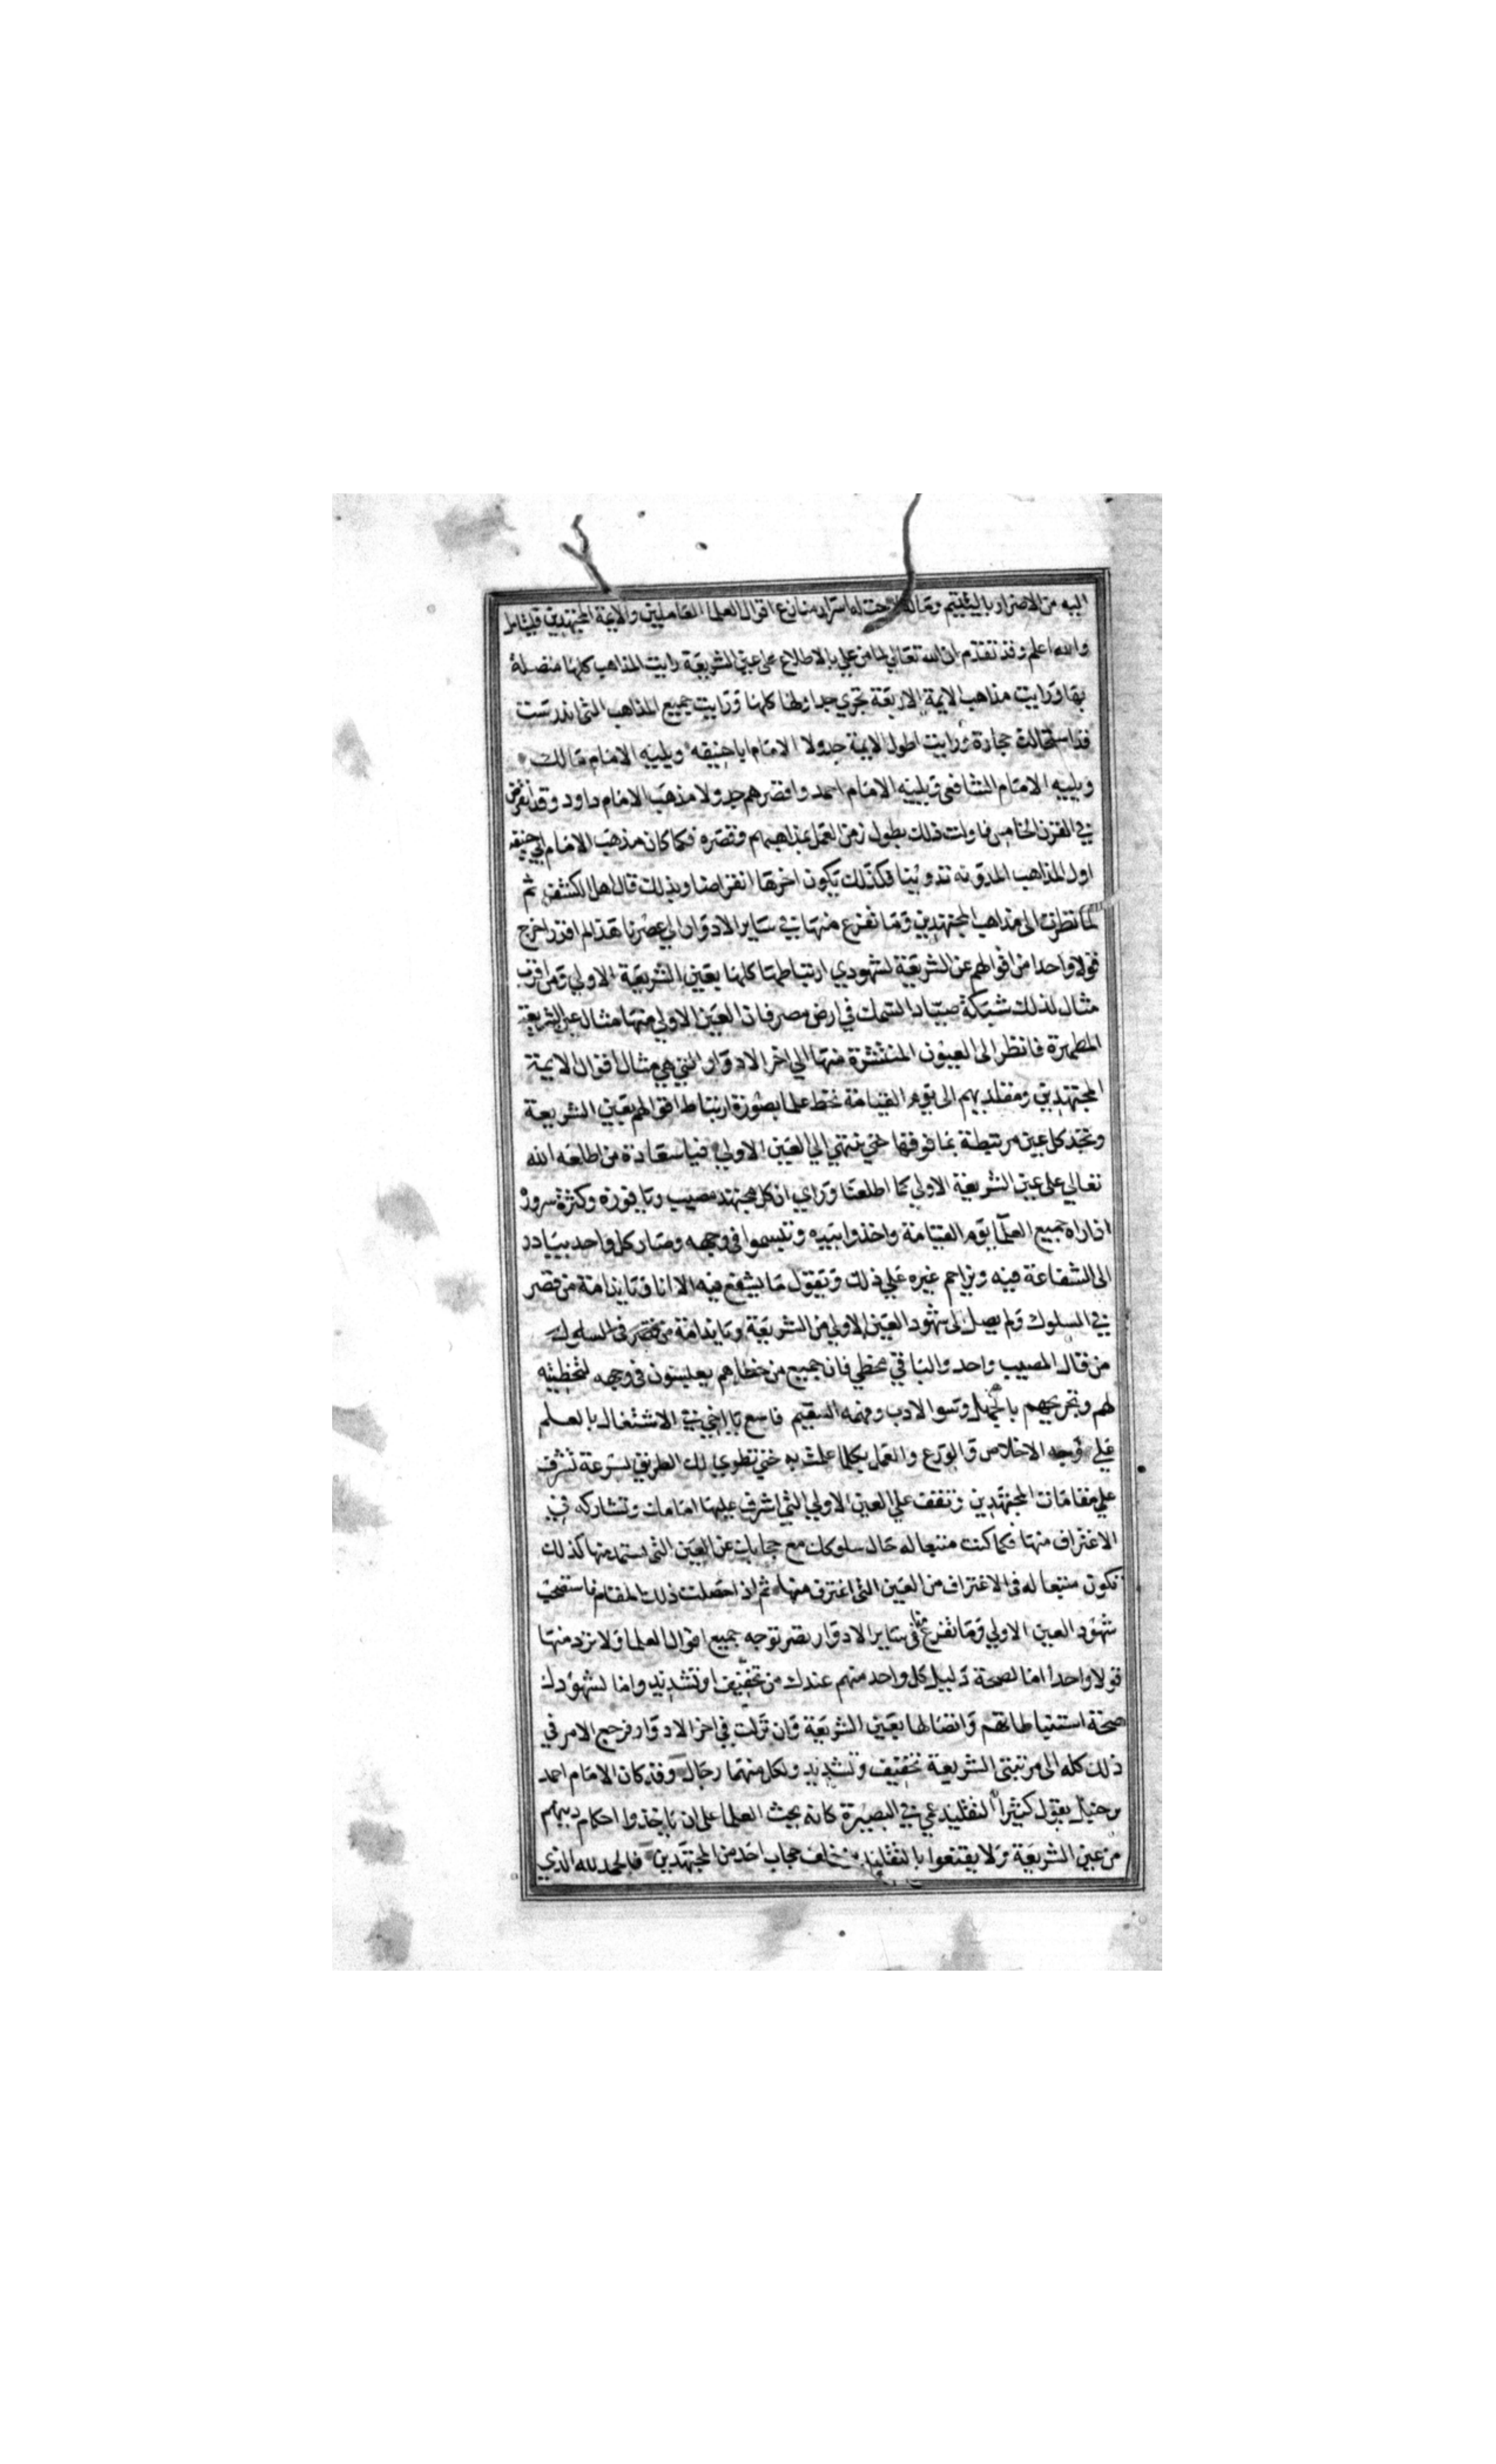 اليه من الاضرار باليتيم وماله لاحت له اسرار منازع اقوال العلما العاملين والايمة المجتهدين فليتامل
والله اعلم وقد تقدم ان الله تعالي لما من علي بالاطلاع على عين الشريعة رايت المذاهب كلها متصلة
بها ورايت مذاهب الايمة الاربعة تجري جداولها كلها ورايت جميع المذاهب التى اندرست
قد استحالت حجارة ورايت اطول الايمة جدولا الامام ابا حنيفه ويليه الامام مالك
ويليه الامام الشافعى ويليه الامام احمد واقصرهم جدولا مذهب الامام داود وقد انقرض
في القرن الخامس فاولت ذلك بطول زمن العمل بمذاهبهم وقصره فكما كان مذهب الامام ابي حنيفه
اول المذاهب المدونه تدوينا فكذلك يكون اخرها انقراضا وبذلك قال اهل الكشف ثم
لما نظرت الى مذاهب المجتهدين وما تفرع منها في ساير الادوار الي عصرنا هذا لم اقدر اخرج
قولا واحدا من اقوالهم عن الشريعة لشهودي ارتباطها كلها بعين الشريعة الاولي ومن اقرب
مثال لذلك شبكة صياد السمك في ارض مصر فان العين الاولي منها مثال عين الشريعة
المطهرة فانظر الى العيون المنتشرة منها الي اخر الادوار التي هي مثال اقوال الايمة
المجتهدين ومقلديهم الى يوم القيامة تحط علما بصورة ارتباط اقوالهم بعين الشريعة
وتجد كل عين مرتبطة بما فوقها حتي تنتهي الي العين الاولي فيا سعادة من اطلعه الله
تعالي على عين الشريعة الاولي كما اطلعنا وراي ان كل مجتهد مصيب ويا فوزه وكثرة سروره
اذا راه جميع العلما يوم القيامة واخذوا بيده وتبسموا في وجهه وصار كل واحد يبادر
الى الشفاعة فيه ويزاحم غيره علي ذلك ويقول ما يشفع فيه الا انا ويا ندامة من قصر
في السلوك ولم يصل الى شهود العين الاولي من الشريعة ويا ندامة من قصر فى السلوك
من قال المصيب واحد والباقي مخطي فان جميع من خطاهم يعبسون فى وجهه لتخطيته
لهم وتجريحهم بالجهل وسوا الادب وفهمه السقيم فاسع يا اخي في الاشتغال بالعلم
علي وجه الاخلاص والورع والعمل بكل ما علمت به حتي تطوي لك الطريق بسرعة تشرف
علي مقامات المجتهدين وتقف علي العين الاولي التي اشرف عليها امامك وتشاركه في
الاغتراف منها فكما كنت متبعا له حال سلوكك مع حجابك عن العين التي يستمد منها كذلك
تكون متبعا له فى الاغتراف من العين التى اغترف منها ثم اذا حصلت ذلك المقام فاستصحب
شهود العين الاولي وما تفرع منها فى ساير الادوار تصر توجه جميع اقوال العلما ولا ترد منها
قولا واحدا اما لصحة دليل كل واحد منهم عندك من تخفيف او تشديد واما لشهودك
صحة استنباطاتهم واتصالها بعين الشريعة وان نزلت في اخر الادوار فرجع الامر في
ذلك كله الى مرتبتى الشريعة تخفيف وتشديد ولكل منهما رجال وقد كان الامام احمد
بن حنبل يقول كثيرا التقليد عمي في البصيرة كانه يحث العلما على ان ياخذوا احكام دينهم
من عين الشريعة ولا يقنعوا بالتقليد من خلف حجاب احد من المجتهدين فالحمد لله الذي